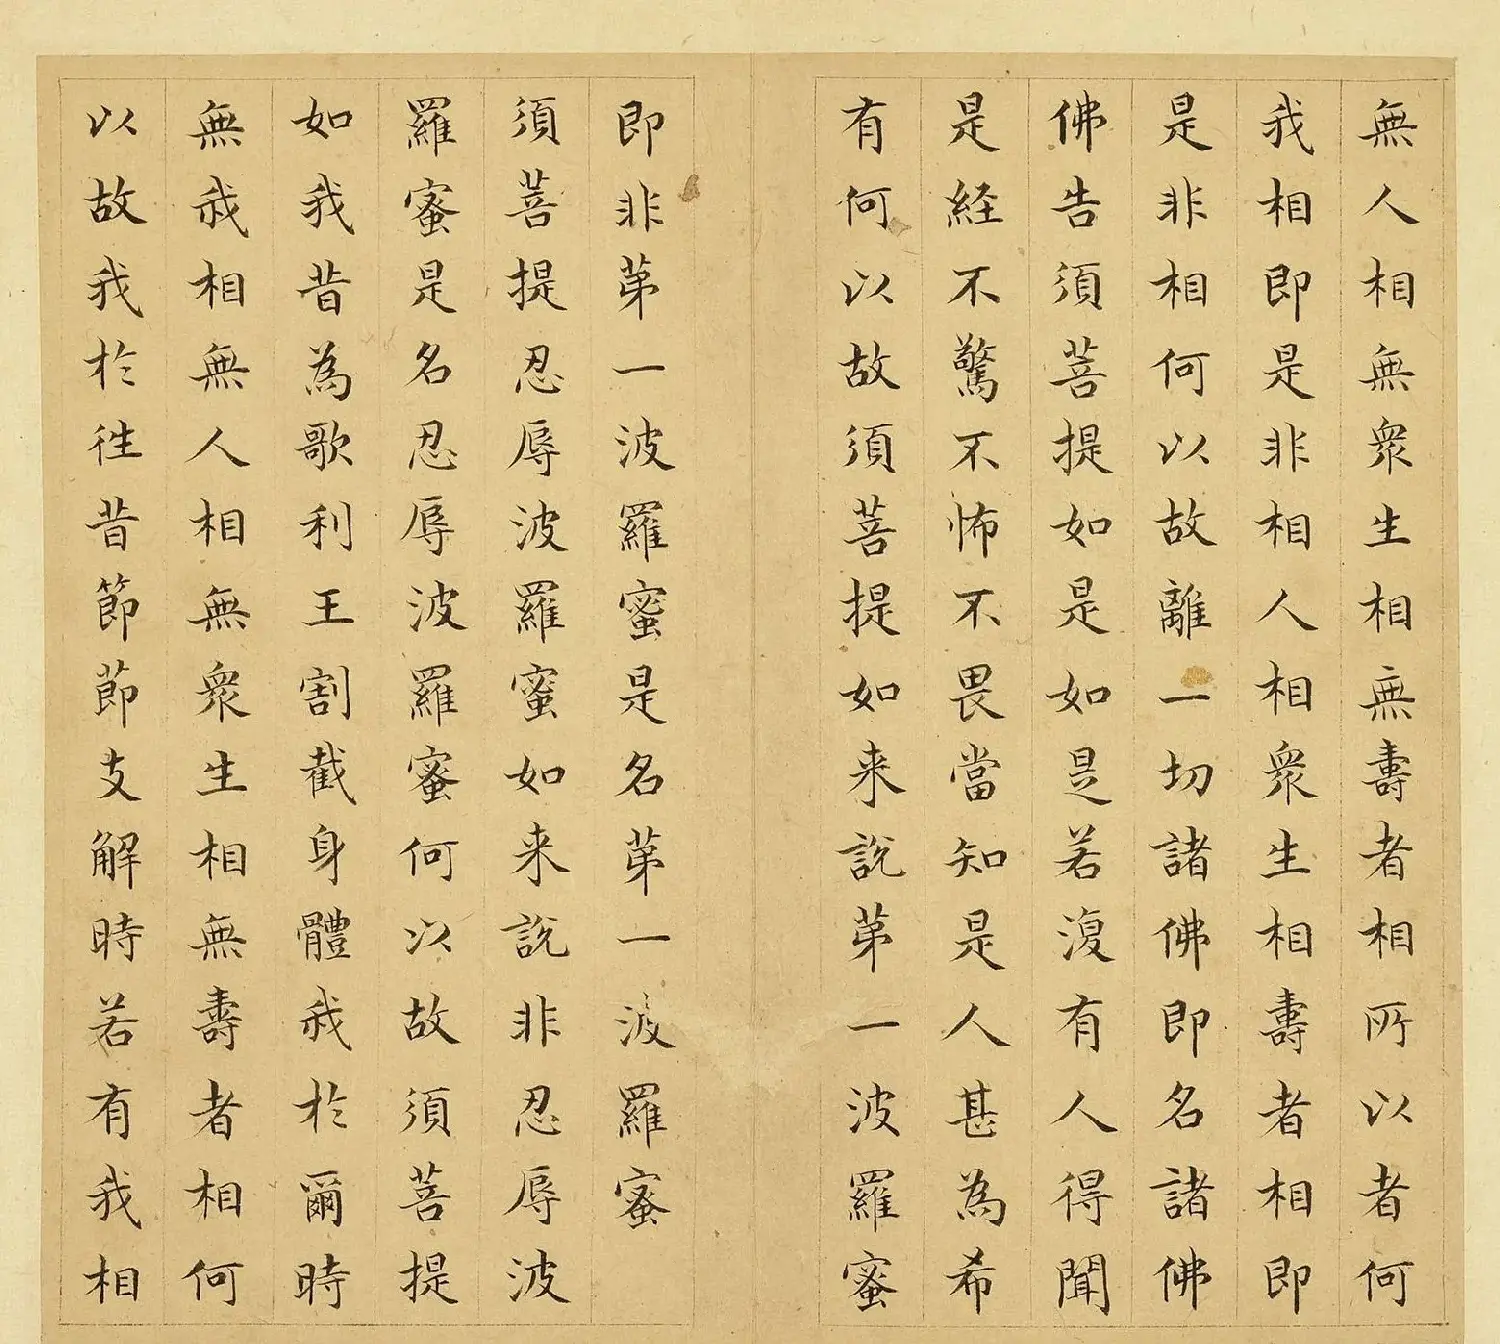 無人相無衆生相無壽者相所以者何
我相即是非相人相衆生相壽者相即
是非相何以故離一切諸佛即名諸佛
佛告須菩提如是如是若復有人得聞
是経不驚不怖不畏當知是人甚為希
有何以故須菩提如来說苐一波羅蜜
即非苐一波羅蜜是名苐一波羅蜜
須菩提忍辱波羅蜜如来說非忍辱波
羅蜜是名忍辱波羅蜜何以故須菩提
如我昔為歌利王割截身體我於爾時
無我相無人相無衆生相無壽者相何
以故我於徃昔節節支解時若有我相